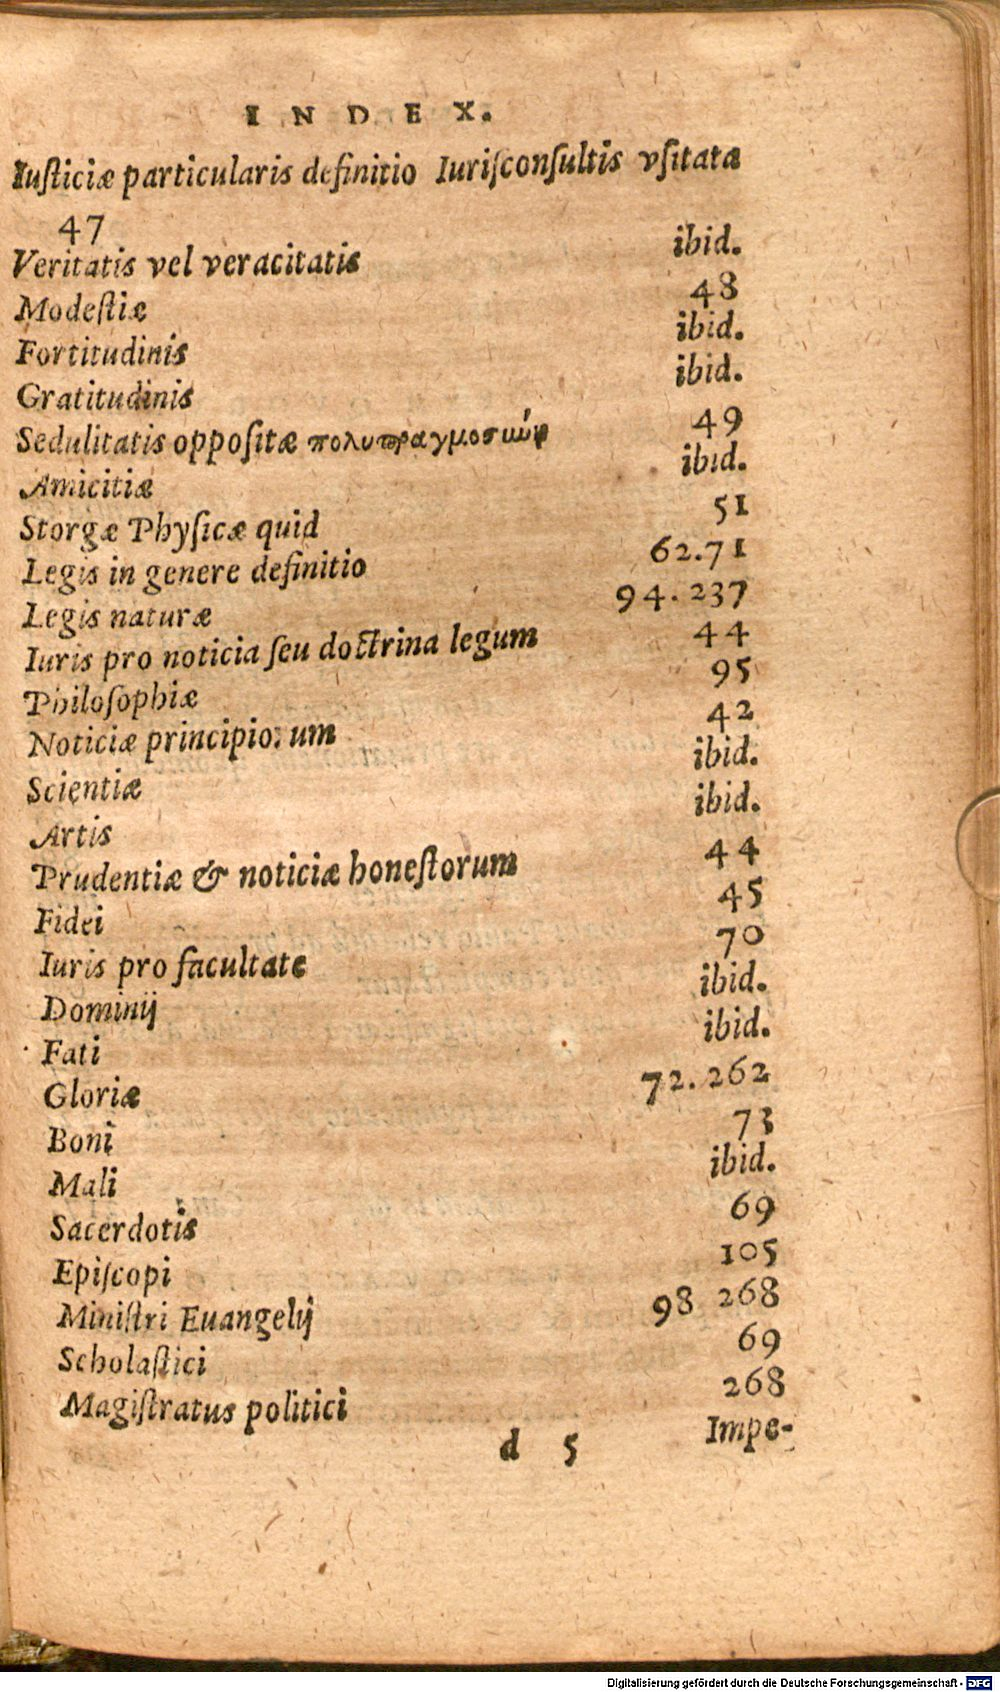 INDEX.
Iuſticiæ particularis definitio Iuriſconſultis vſitata
47
Veritatis vel veracitatis ibid.
Modeſtiæ 48
Fortitudinis ibid.
Gratitudinis ibid.
Sedulitatis oppoſitæ πολυπραγμοσύνῃ 49
Amicitiæ ibid.
Storgæ Phyſicæ quid 51
Legis in genere definitio 62.71
Legis naturæ 94.237
Iuris pro noticia ſeu doctrina legum 44
Philoſophiæ 95
Noticiæ principiorum 42
Scientiæ ibid.
Artis ibid.
Prudentiæ & noticiæ honeſtorum 44
Fidei 45
Iuris pro facultate 70
Dominij ibid.
Fati ibid.
Gloriæ 72.262
Boni 73
Mali ibid.
Sacerdotis 69
Epiſcopi 105
Miniſtri Euangelij 98 268
Scholaſtici 69
Magiſtratus politici 268
d 5 Impe-
Digitalisierung gefördert durch die Deutsche Forschungsgemeinschaft - DFG